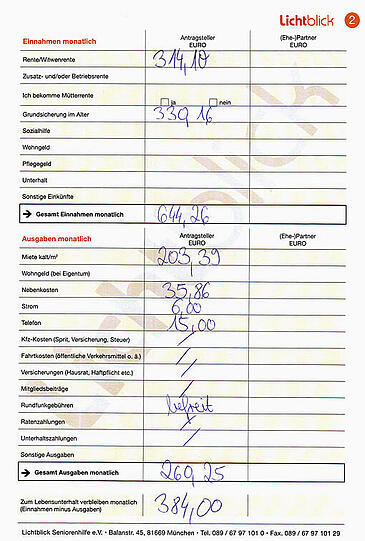 Lichtblick 2
Einnahmen monatlich Antragsteller EURO (Ehe-)Partner EURO
Rente/Witwenrente 314,10
Zusatz- und/oder Betriebsrente
Ich bekomme Mütterrente ja nein
Grundsicherung im Alter 330,16
Sozialhilfe
Wohngeld
Pflegegeld
Unterhalt
Sonstige Einkünfte
→ Gesamt Einnahmen monatlich 644,26
Ausgaben monatlich Antragsteller EURO (Ehe-)Partner EURO
Miete kalt/m² 203,39
Wohngeld (bei Eigentum)
Nebenkosten 35,86
Strom 6,00
Telefon 15,00
Kfz-Kosten (Sprit, Versicherung, Steuer)
Fahrtkosten (öffentliche Verkehrsmittel o. ä.)
Versicherungen (Hausrat, Haftpflicht etc.)
Mitgliedsbeiträge
Rundfunkgebühren befreit
Ratenzahlungen
Unterhaltszahlungen
Sonstige Ausgaben
→ Gesamt Ausgaben monatlich 260,25
Zum Lebensunterhalt verbleiben monatlich 384,00
(Einnahmen minus Ausgaben)
Lichtblick Seniorenhilfe e.V. • Balanstr. 45, 81669 München • Tel. 089 / 67 97 101 0 • Fax. 089 / 67 97 101 29
Lichtblick